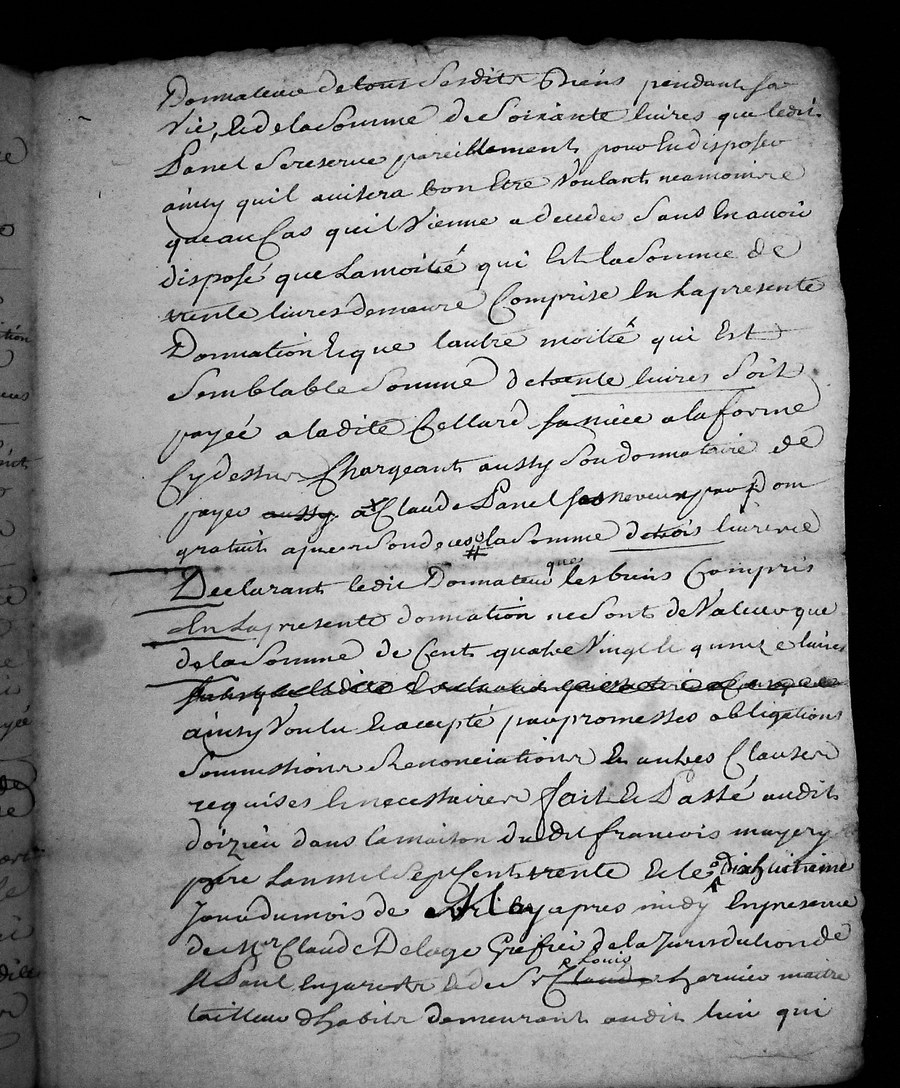 Donnateur de tous Sesdits Biens pendant sa
Vie, et de la Somme de Soixante livres que ledit
Panel Se reserve pareillement pour En disposer
ainsy quil avisera bon Etre Voulant neamoins
que au Cas quil Vienne a deceder Sans En avoir
disposé que La moitié qui Est la Somme de
trente livres demeure Comprise En La presente
Donnation Et que lautre moitié qui Est
Semblable Somme de trente livres Soit
payée a ladite Cellard sa niéce a la forme
Cy dessus Chargeant aussy Son donnataire de
payer aussy a Claude Panel neveux par Dom
gratuit apres Son deces la Somme de trois livres
Declarant ledit Donnateur que les biens Compris
En La presente donnation ne Sont de Valeur que
de la Somme de Cent quatre Vingt et quinze livres
ainsy Voulu Et accepté par promesses obligations
Soumissions Renonciations Et autres Clauses
requises Et necessaires fait et Passé audit
doizieu dans la maison du dit francois mayery
père Lan mil Sept Cents trente Et le Dixhuitieme
Jour du mois de May apres midy En presence
de Mr Claude Deloge Greffier de la Jurisdiction de
St Paul En jarest Et de Sr Claude Louis maitre
tailleur dhabits demeurant audit lieu qui